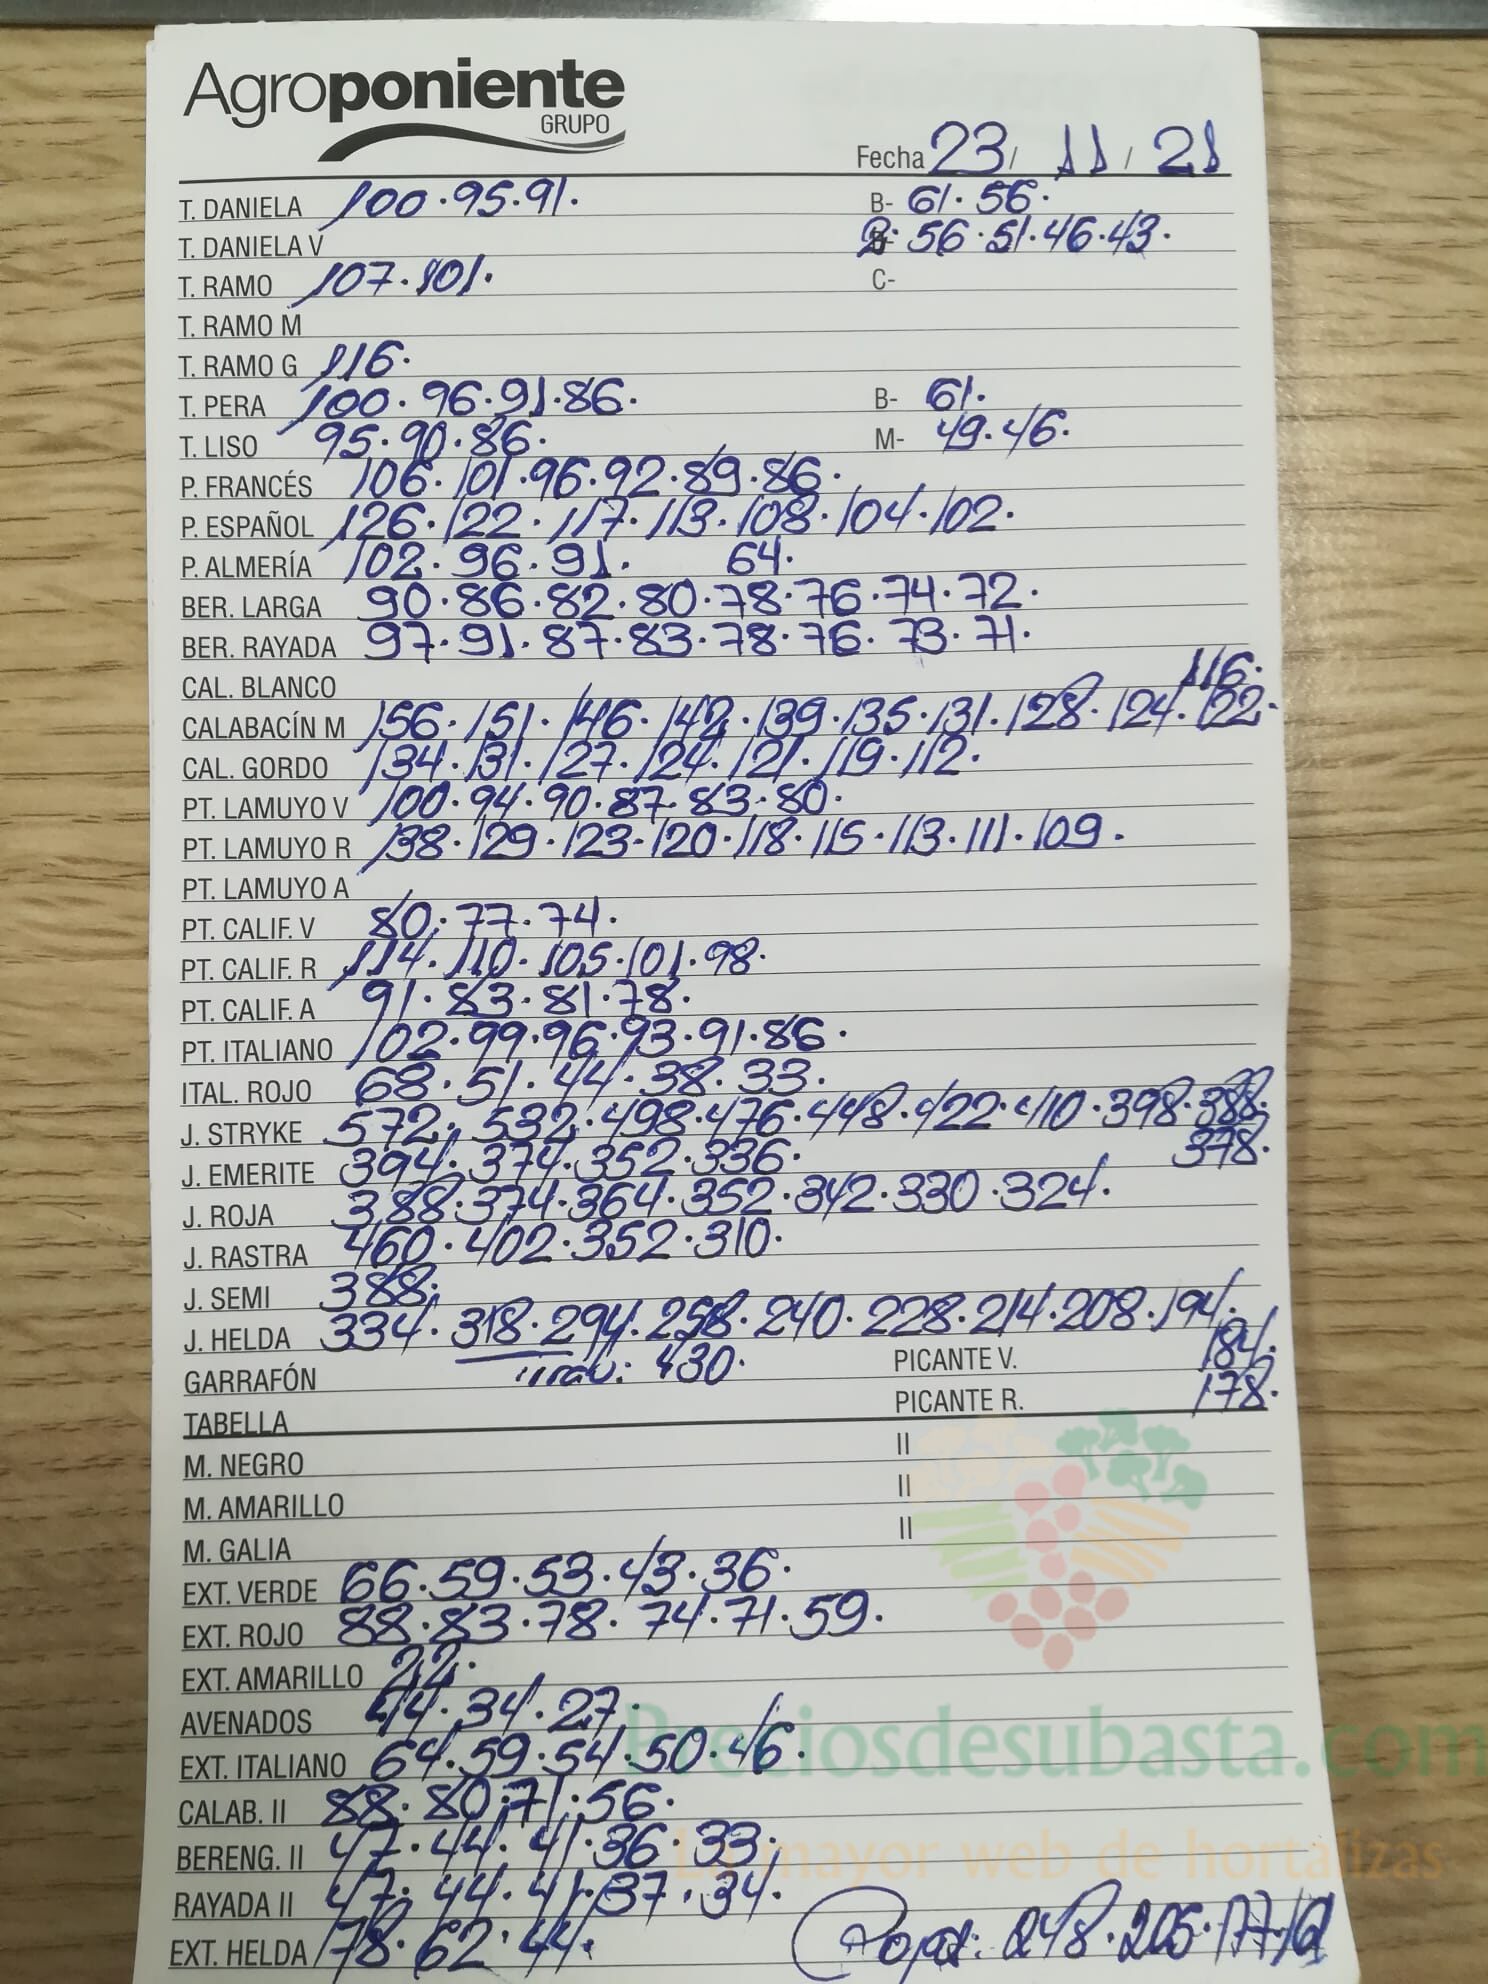 Agroponiente
GRUPO
Fecha 23 / 11 / 21
T. DANIELA 100·95·91· B- 61·56·
T. DANIELA V 2· 56·51·46·43·
T. RAMO 107·101· C-
T. RAMO M
T. RAMO G 116·
T. PERA 100·96·91·86· B- 61·
T. LISO 95·90·86· M- 49·46·
P. FRANCÉS 106·101·96·92·89·86·
P. ESPAÑOL 126·122·117·113·108·104·102·
P. ALMERÍA 102·96·91· 64·
BER. LARGA 90·86·82·80·78·76·74·72·
BER. RAYADA 97·91·87·83·78·76·73·71·
CAL. BLANCO 116·
CALABACÍN M 156·151·146·142·139·135·131·128·124·122·
CAL. GORDO 134·131·127·124·121·119·112·
PT. LAMUYO V 100·94·90·87·83·80·
PT. LAMUYO R 138·129·123·120·118·115·113·111·109·
PT. LAMUYO A
PT. CALIF. V 80·77·74·
PT. CALIF. R 114·110·105·101·98·
PT. CALIF. A 91·83·81·78·
PT. ITALIANO 102·99·96·93·91·86·
ITAL. ROJO 68·51·44·38·33·
J. STRYKE 572·532·498·476·448·422·410·398·388·
378·
J. EMERITE 394·374·352·336·
J. ROJA 388·374·364·352·342·330·324·
J. RASTRA 460·402·352·310·
J. SEMI 388·
J. HELDA 334·318·294·258·240·228·214·208·194·
GARRAFÓN 430· PICANTE V. 184·
TABELLA PICANTE R. 178·
M. NEGRO II
M. AMARILLO II
M. GALIA II
EXT. VERDE 66·59·53·43·36·
EXT. ROJO 88·83·78·74·71·59·
EXT. AMARILLO 22·
AVENADOS 44·34·27·
Preciosdesubasta.com
EXT. ITALIANO 64·59·54·50·46·
CALAB. II 88·80·71·56·
La mayor web de hortalizas
BERENG. II 47·44·41·36·33·
RAYADA II 47·44·41·37·34·
EXT. HELDA 178·62·44· 248·205·177